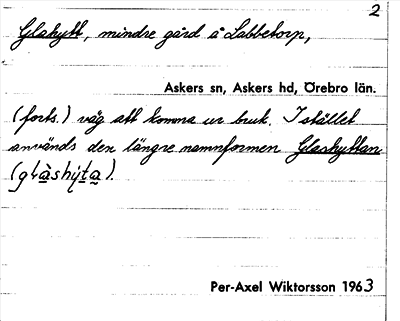 2
Glahytt, mindre gård å Labbetorp,
Askers sn, Askers hd, Örebro län.
(forts.) väg att komma ur bruk. I stället
används den längre namnformen Glashyttan
Per-Axel Wiktorsson 1963